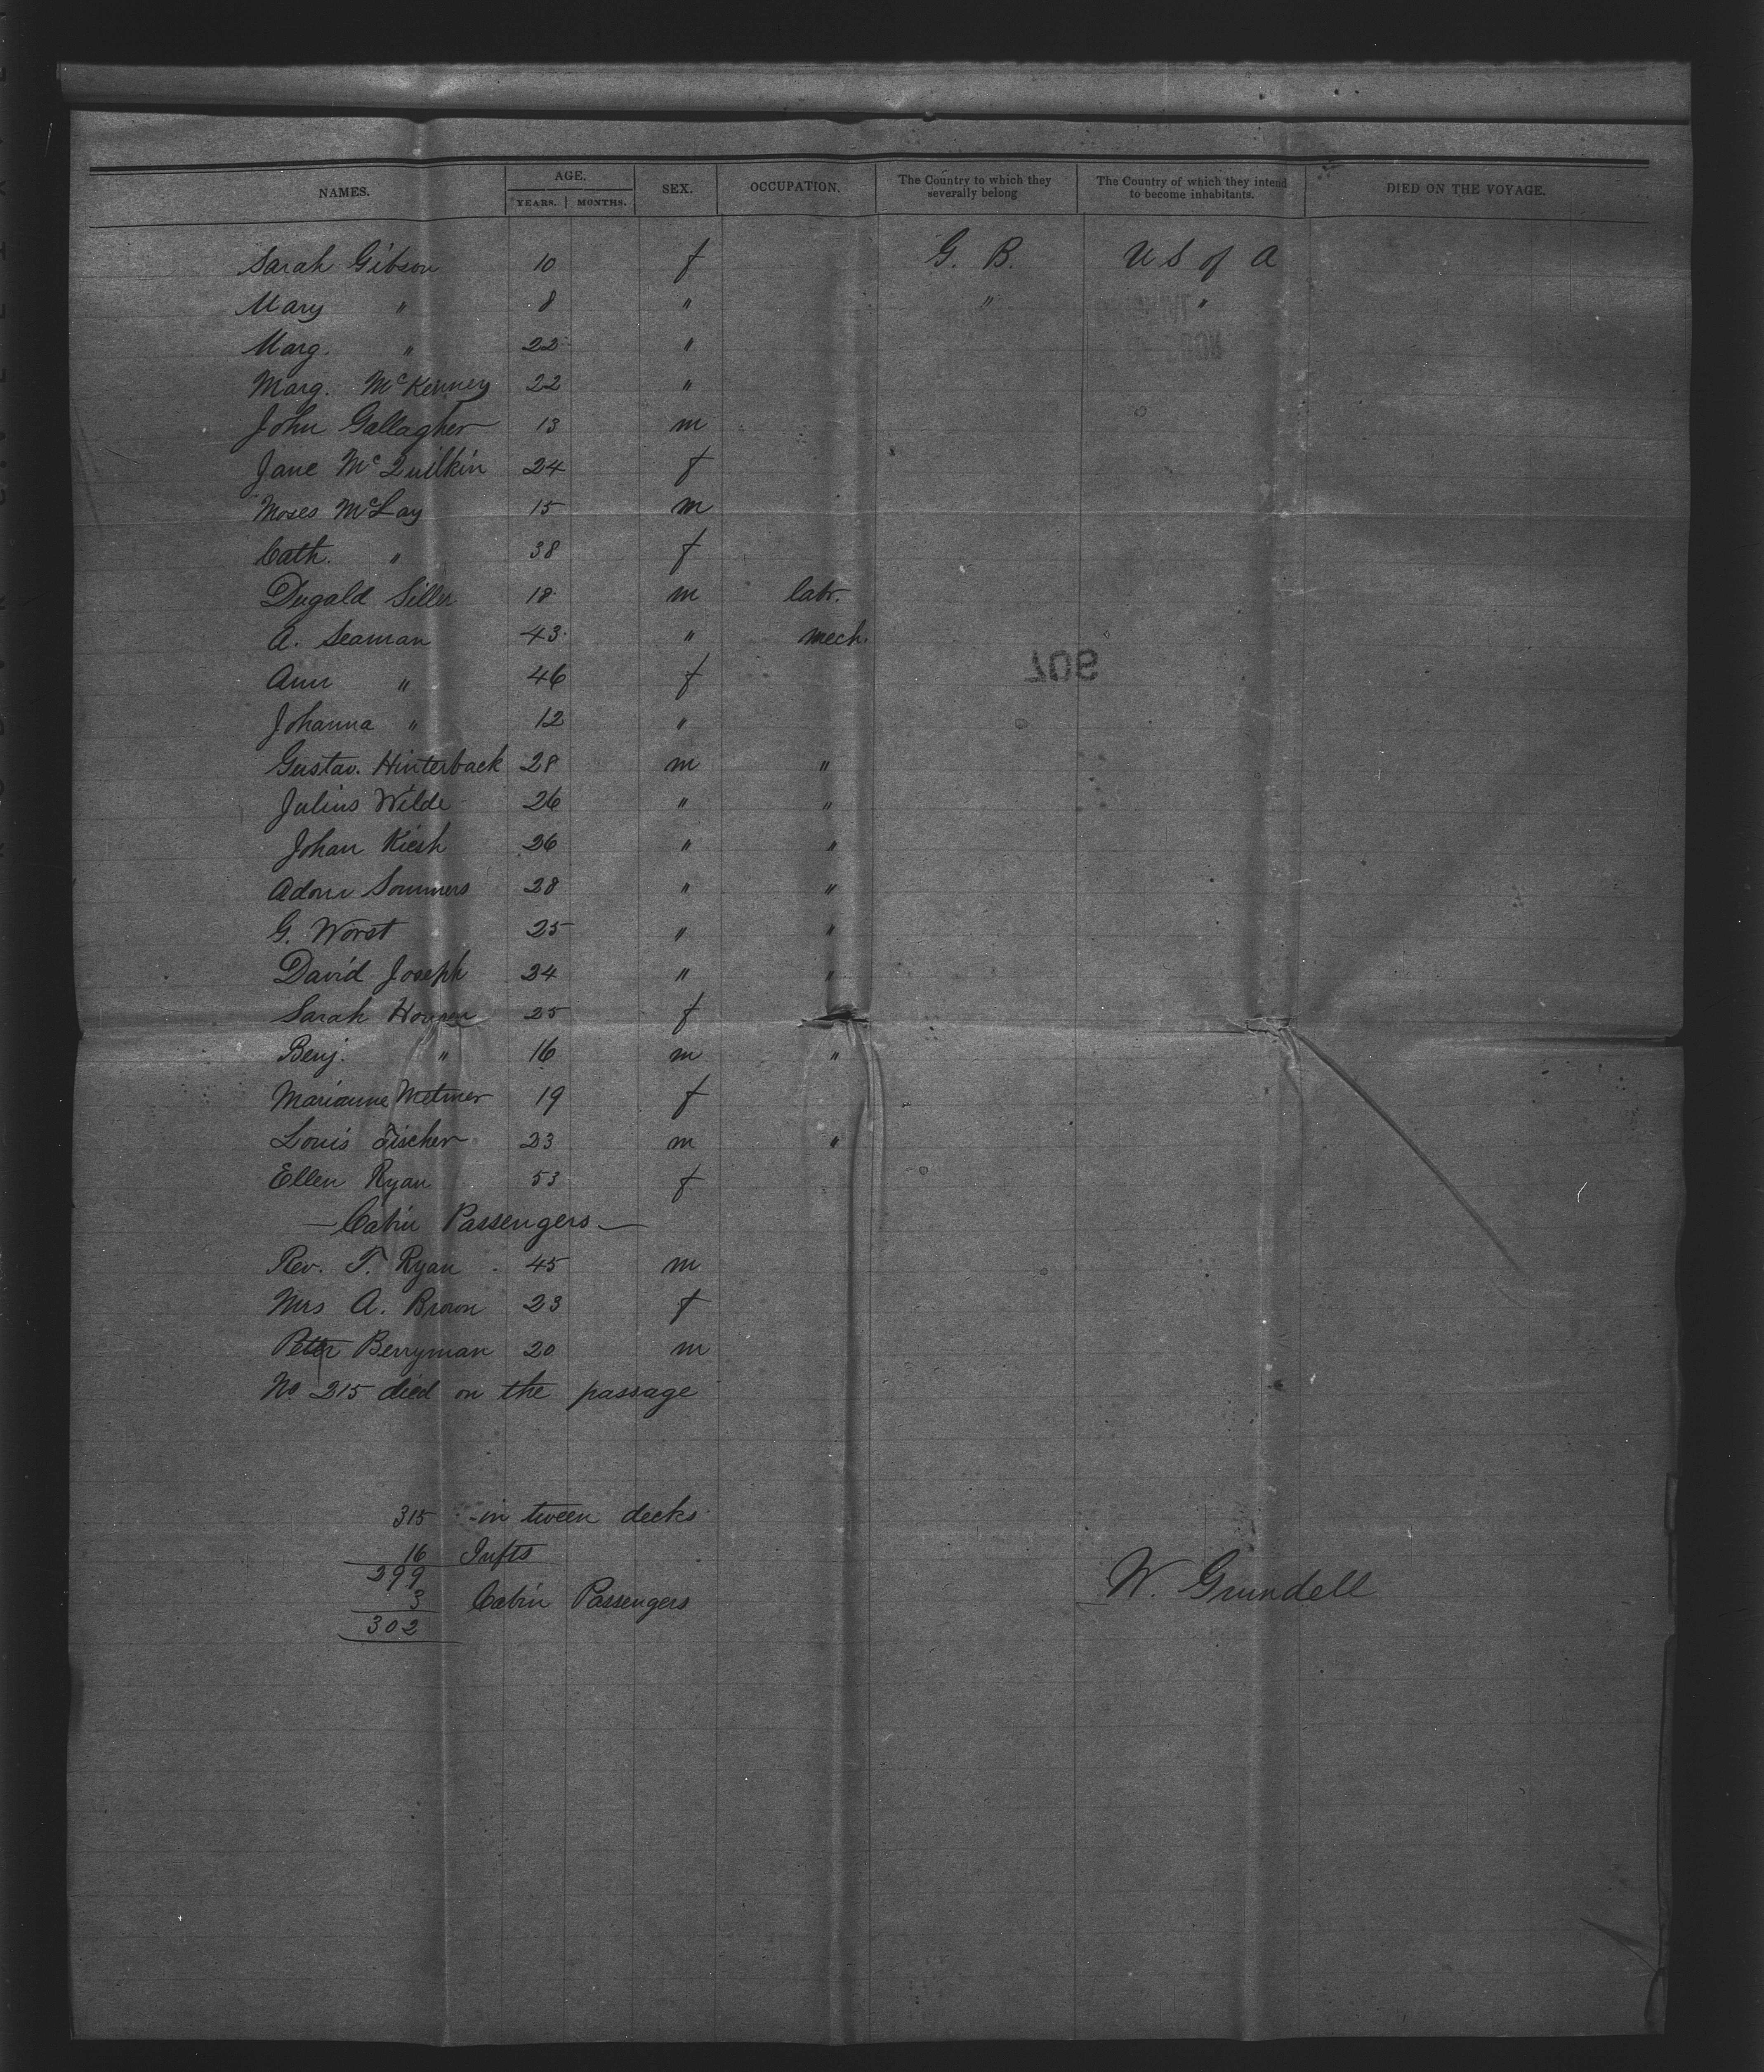 NAMES. AGE. YEARS. MONTHS. SEX. OCCUPATION. The Country to which they severally belong The Country of which they intend to become inhabitants. DIED ON THE VOYAGE.
Sarah Gibson 10 f G. B. U S of A
Mary " 8 " " "
Marg. " 22 "
Marg. McKenney 22 "
John Gallagher 13 m
Jane McQuilkin 24 f
Moses McLay 15 m
Cath. " 38 f
Dugald Siller 18 m labr.
A. Seaman 43 " mech.
Ann " 46 f
Johanna " 12 "
Gustav. Hinterback 28 m "
Julius Wilde 26 " "
Johan Kiesh 26 " "
Adom Sommers 28 " "
G. Worst 25 " "
David Joseph 34 " "
Sarah 25 f
Benj. " 16 m "
Marianne Metmer 19 f
Louis Fischer 23 m "
Ellen Ryan 53 f
— Cabin Passengers —
Rev. T. Ryan 45 m
Mrs A. Brown 23 f
Peter Berryman 20 m
No 215 died on the passage
315 in tween decks
16 Infts
299
3 Cabin Passengers
302
W. Grundell